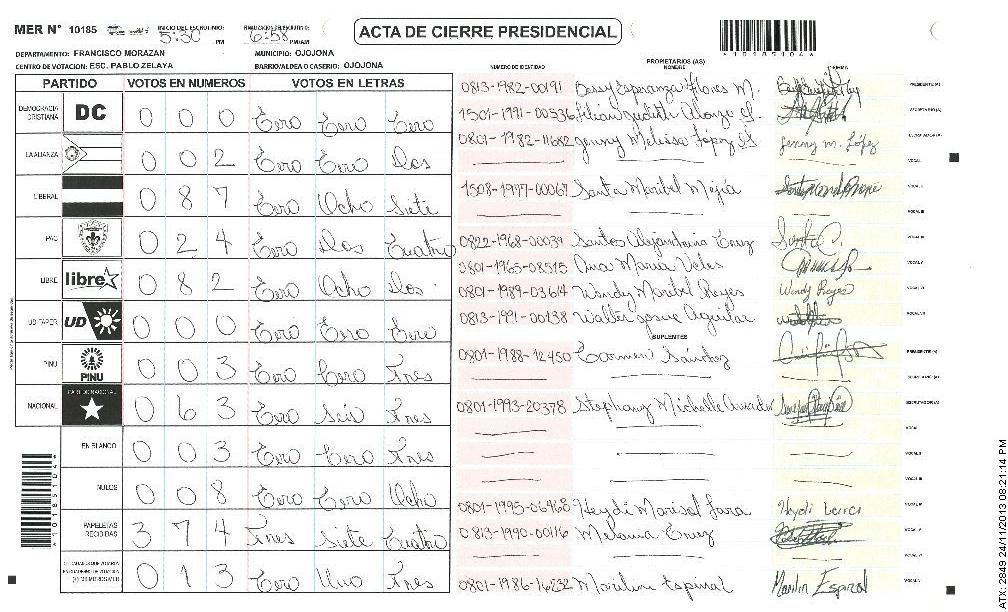 MER N° 10185 INICIO DEL ESCRUTINIO: 5:30 PM FINALIZACION DEL ESCRUTINIO: 6:58 PM/AM ACTA DE CIERRE PRESIDENCIAL
DEPARTAMENTO: FRANCISCO MORAZAN MUNICIPIO: OJOJONA
CENTRO DE VOTACION: ESC. PABLO ZELAYA BARRIO/ALDEA O CASERIO: OJOJONA
PARTIDO VOTOS EN NUMEROS VOTOS EN LETRAS
DEMOCRACIA CRISTIANA DC 0 0 0 Cero Cero Cero
LA ALIANZA 0 0 2 Cero Cero Dos
LIBERAL 0 8 7 Cero Ocho Siete
PAC 0 2 4 Cero Dos Cuatro
LIBRE libre 0 8 2 Cero Ocho Dos
UD FAPER UD 0 0 0 Cero Cero Cero
PINU PINU 0 0 3 Cero Cero Tres
NACIONAL PARTIDO NACIONAL 0 6 3 Cero Seis Tres
EN BLANCO 0 0 3 Cero Cero Tres
NULOS 0 0 8 Cero Cero Ocho
PAPELETAS RECIBIDAS 3 7 4 Tres Siete Cuatro
0 1 3 Cero Uno Tres
NUMERO DE IDENTIDAD PROPIETARIOS (AS) NOMBRE FIRMA
0813-1982-00191 Bessy Esperanza Flores M. PRESIDENTE (A)
1501-1991-00536 Lilian Judith SECRETARIO (A)
0801-1982-11682 Jenny Melissa López Jenny M. López ESCRUTADOR (A)
VOCAL I
1508-1977-00067 Santa Maribel Mejía VOCAL II
VOCAL III
0822-1968-00039 Santos Alejandrina Cruz
0801-1965-08515 Ana Maria Veles VOCAL V
0801-1989-03614 Wendy Maribel Reyes Wendy Reyes VOCAL VI
0813-1991-00138 Walter Josue Aguilar
SUPLENTES
0801-1988-12450 Carmen Sánchez PRESIDENTE (A)
SECRETARIO (A)
0801-1993-20378 Stephany Michelle Amador ESCRUTADOR (A)
VOCAL I
VOCAL II
VOCAL III
0801-1995-06968 Heydi Marisol Lara
0813-1990-00116 Melania Cruz VOCAL V
VOCAL VI
0801-1986-16232 Marilin Espinal Marilin Espinal
ATX-2849 24/11/2013 08:21:14 PM